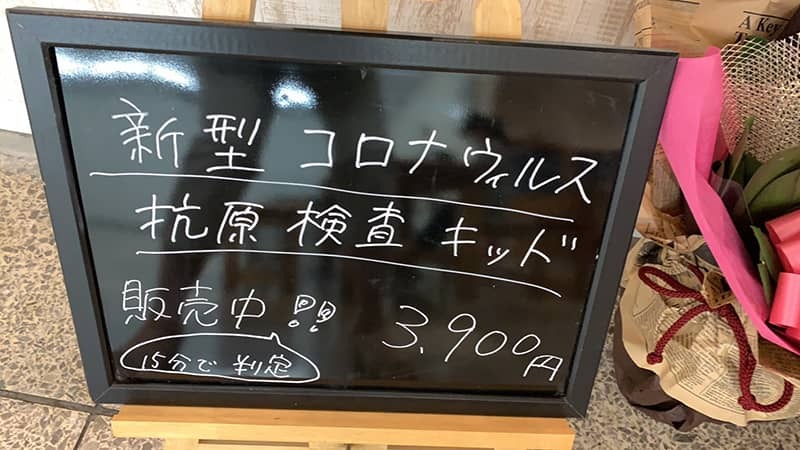 新型 コロナウィルス
抗原 検査 キッド
販売中!!
3,900円
15分で 判定
A Key